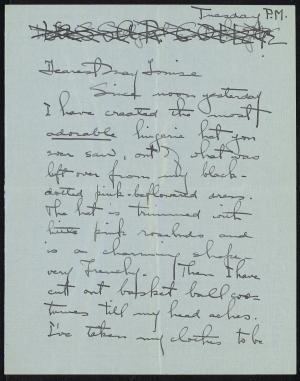 Tuesday P.M.
Dearest May Louise
Since noon yesterday
I have created the most
adorable lingerie hat you
ever saw, out of what was
left over from my black-
dotted pink-beflowered dress.
The hat is trimmed with
pink rosebuds and
is a charming shape
very Frenchy. Then I have
cut out basket ball cos-
tumes till my head aches.
I've taken my clothes to be